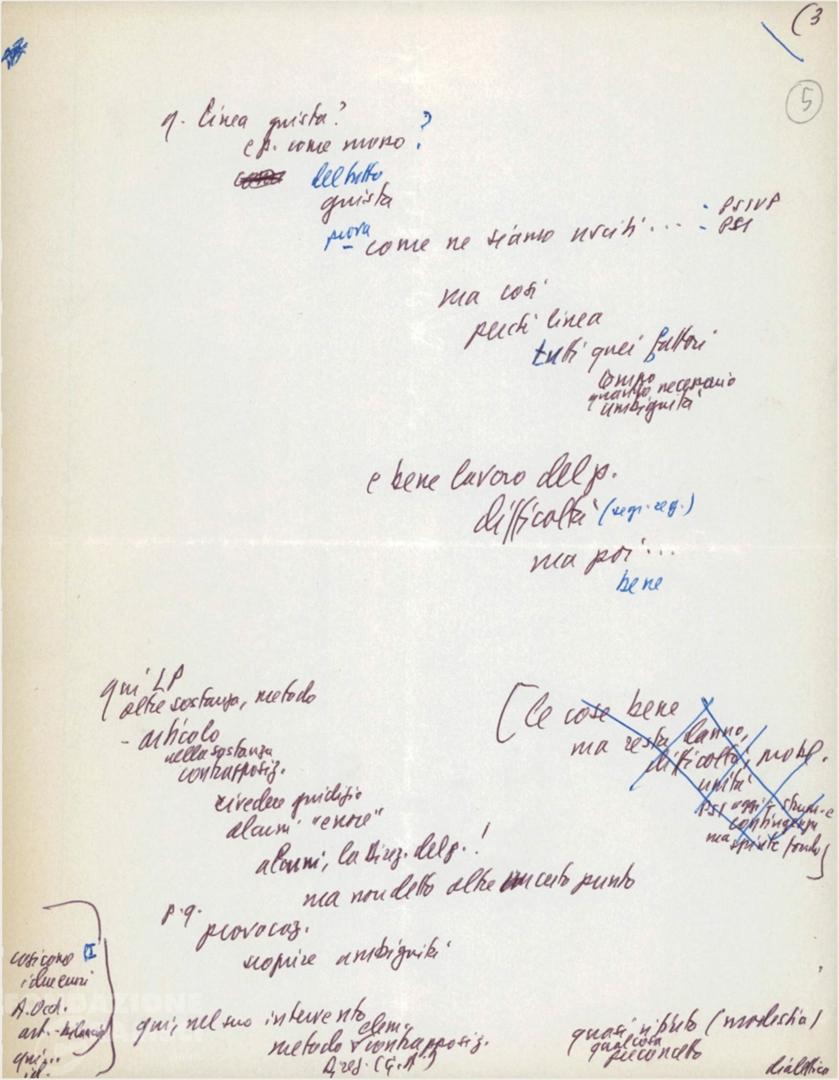 (3
5
q. linea giusta?
e p. come mosso?
del tutto
giusta
prova come ne siamo usciti... : PSIUP
- PSI
ma così
perché linea
tutti quei fattori
tempo
quanto necessario
ambiguità
e bene lavoro del p.
difficoltà (segr. reg.)
ma poi...
bene
qui LP
oltre sostanza, metodo
- articolo
nella sostanza
contrapposiz.
rivedere giudizio
alcuni "errore"
alcuni, la Direz. del p.!
ma non detto oltre un certo punto
p. q.
provocaz.
scoprire ambiguità
[le cose bene
ma resta danno,
difficoltà, mobil.
unità
PSI oggi strum.e
contingenza
ma spinte fondo]
così come
i due
A. Occh.
art. - bilancio
qui..
id.
qui, nel suo intervento
elem.
metodo contrapposiz.
Direz. (G. A.)
quasi rifiuto (modestia)
qualcosa
preconcetto
dialettico